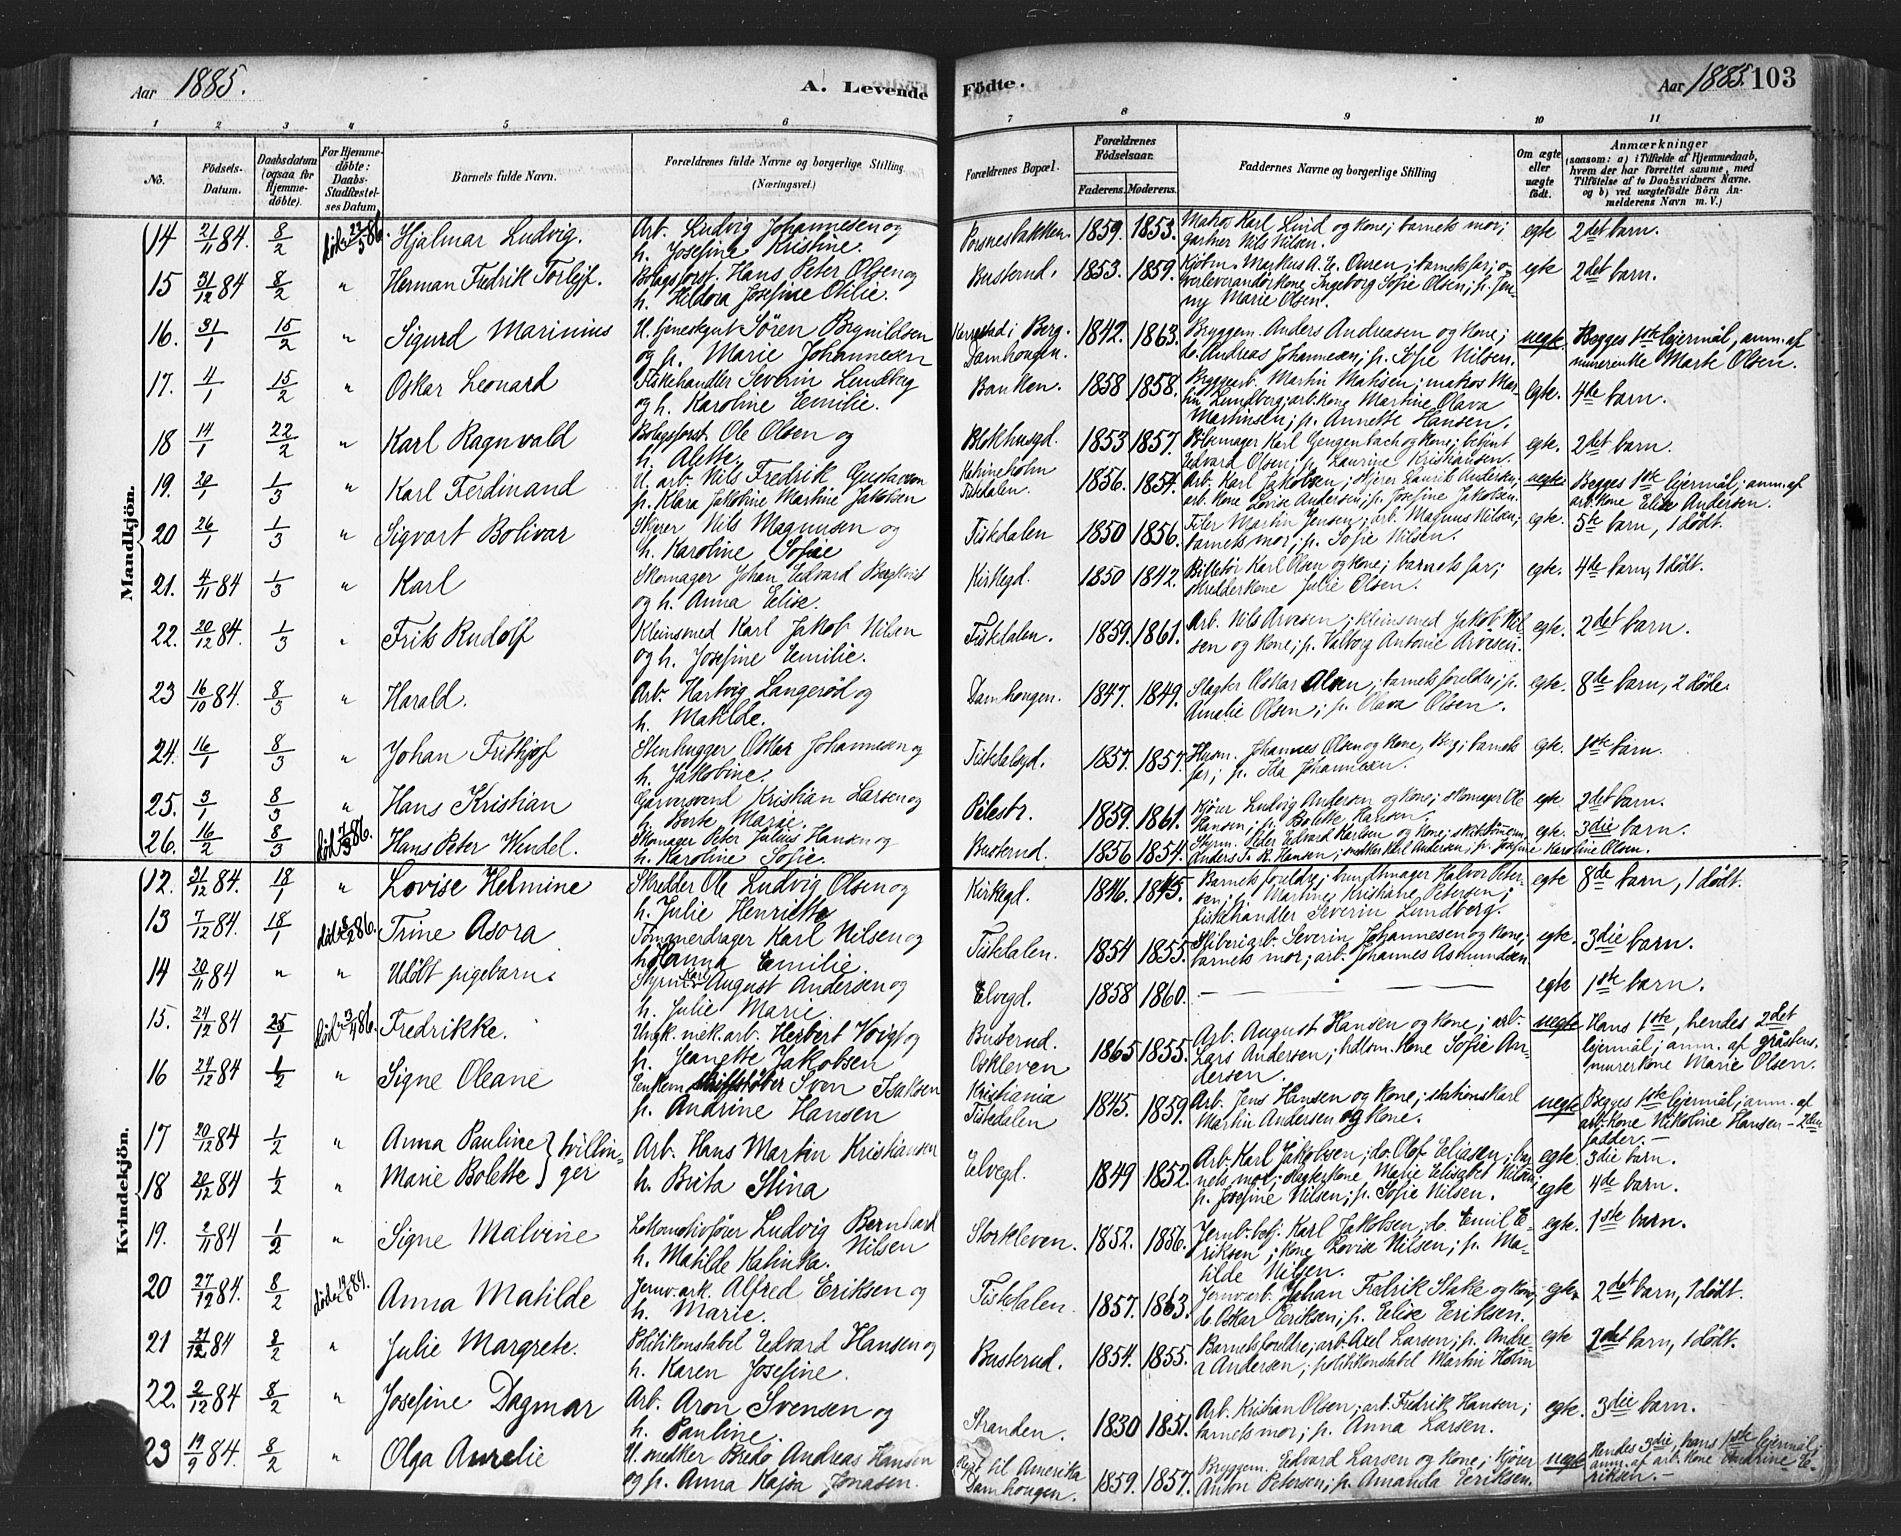 Aar 1885. A. Levende Födte. Aar 1885. 103
1 2 3 4 5 6 7 8 9 10 11
No. Födsels-Datum. Daabsdatum (ogsaa for Hjemme-döbte). For Hjemme-döbte: Daabs-Stadfæstel-ses Datum. Barnets fulde Navn. Forældrenes fulde Navne og borgerlige Stilling (Næringsvei.) Forældrenes Bopæl. Forældrenes Födselsaar. Faderens. Moderens. Faddernes Navne og borgerlige Stilling Om ægte eller uægte födt. Anmærkninger (saasom: a) i Tilfælde af Hjemmedaab, hvem der har forrettet samme, med Tilföielse af to Daabsvidners Navne. og b) ved uægtefödte Börn An-melderens Navn m. V.)
Mandkjön.
14 21/11 84. 8/2 död 22/5 86. Hjalmar Ludvig. Arb. Ludvig Johannesen og h. Josefine Kristine. 1859. 1853. Karl Lund og kone; barnets mor; gartner Nils Nilsen. egte 2det barn.
15 31/12 84 8/2 " Herman Fredrik Torleif. Hans Peter Olsen og h. Josefine Otilie. Busterud. 1853. 1859. Kjöbm. Markus A. E. Olsen; barnets far; Ingeborg Sofie Olsen; p. Jenny Marie Olsen. egte 2det barn.
16. 31/1 15/2 " Sigurd Marinius U. tjenestgut Sören Brynildsen og p. Marie Johannesen i Berg. Damhougen. 1842. 1863. Bryggem. Anders Andreasen og kone; do. Andreas Johannesen; p. Sofie Nilsen. uegte. Begges 1ste leiermål, anm. af Marte Olsen.
17. 4/1 15/2 " Oskar Leonard Fiskehandler Severin Lundberg og h. Karoline Emilie. Banken. 1858 1858. Bryggearb. Martin Matisen; matros Martin Lundberg; arb. kone Martine Olava Martinsen; p. Annette Hansen. egte. 4de barn.
18 14/1 22/2 " Karl Ragnvald Ole Olsen og h. Alette. Blokhusgd. 1853 1857. Karl Gengenbach og kone; betjent Edvard Olsen; p. Laurine Kristiansen. egte. 2det barn.
19. 20/1 1/3 " Karl Ferdinand U. arb. Nils Fredrik Gustavson p. Klara Jakobine Martine Jakobsen Katrineholm Fiskedalen. 1856. 1854. Arb. Karl Jakobsen; Laurits Andersen; arb. kone Lovise Andersen; p. Josefine Jakobsen. uegte Begges 1ste leiermål; anm. af arb. kone Elise Andersen.
20 26/1 1/3 " Sigvart Bolivar Nils Magnusen og h. Karoline Sofie Fiskdalen 1850 1856. Martin Jensen; arb. Magnus Nilsen; barnets mor; p. Sofie Nilsen. egte. 5te barn, 1 dödt.
21. 4/11 84 1/3 " Karl Skomager Johan Edvard Bergkvist og h. Anna Elise. Kirkegd. 1850 1842. Billetör Karl Olsen og kone; barnets far; skredderkone Julie Olsen. egte. 4de barn, 1 dödt.
22. 20/12 84. 1/3 " Frits Rudolf Kleinsmed Karl Jakob Nilsen og h. Josefine Emilie. Fiskdalen. 1859. 1861. Arb. Nils Arvesen; kleinsmed Jakob Nilsen og kone; p. Valborg Antonie Arvesen. egte. 2det barn.
23 16/10 84. 8/3 " Harald. Arb. Hartvig Langeröd og h. Matilde. Damhougen. 1847. 1849. Slagter Oskar Olsen; barnets foreldre; p. Amalie Olsen; p. Olava Olsen. egte. 8de barn, 2 döde.
24. 16/1 8/3 " Johan Frithjof Stenhugger Oskar Johannesen og h. Jakobine. Fiskdalsgd. 1857. 1857. Husm. Johannes Olsen og kone, Berg; barnets far; p. Ida Johannesen. egte. 1ste barn.
25. 3/1 8/3 " Hans Kristian Garversvend Kristian Larsen og h. Berte Marie. Pilestr. 1859. 1861. Ludvig Andersen og kone; skomager Ole Hansen; p. Bolette Hansen. egte. 2det barn.
26. 16/2 8/3 död 7/3 86. Hans Peter Wendel. Skomager Peter Julius Hansen og h. Karoline Sofie. Busterud. 1856 1854. Styrm. Peder Edvard Karlsen og kone; skibstömerm. Anders J. R. Hansen; snedker Karl Andersen; p. Josefine Karoline Olsen. egte. 3die barn.
Kvindekjön.
12. 31/12 84. 18/1 " Lovise Helmine Skredder Ole Ludvig Olsen og h. Julie Henriette Kirkegd. 1846. 1845. Barnets foreldre; bundtmager Halvor Petersen; p. Martine Kristiane Petersen; fiskehandler Severin Lundberg. egte 8de barn, 1 dödt.
13 7/12 84. 18/1 död 8/2 86. Trine Asora Karl Nilsen og h. Hanna Emilie. Fiskdalen. 1854 1855. Sliberiarb. Severin Johannesen og kone; barnets mor; arb. Johannes Asmundsen egte. 3die barn.
14 20/11 84 " " Udöbt pigebarn. Styrm. Karl August Andersen og h. Julie Marie. Elvegd. 1858 1860. — — — — egte 1ste barn.
15. 24/12 84 25/1 död 3/4 86. Fredrikke. Ungk. mek. arb. Herbert Voigt og p. Jeanette Jakobsen Busterud. Oskleven 1865 1855. Arb. August Hansen og kone; arb. Lars Andersen; kone Sofie Andersen. uegte Hans 1ste, hendes 2det leiermål; anm. af murerkone Marie Olsen.
16 24/12 84 1/2 " Signe Oleane Enkem. Sven Isaksen p. Andrine Hansen Kristiania Fiskedalen 1845. 1859. Arb. Jens Hansen og kone; stationskarl Martin Andersen og kone. uegte Begges 1ste leiermål; anm. af arb. kone Nikoline Hansen — 2den fadder. —
17 20/12 84 1/2 " Anna Pauline } tvillin- Arb. Hans Martin Kristiansen Elvegd. 1849 1852. Arb. Karl Jakobsen; do. Olof Eliasen; barnets mor; slagterkone Marie Elisabet Nilsen; p. Josefine Nilsen; p. Sofie Nilsen. egte. 3die barn.
18 20/12 84 1/2 " Marie Bolette } ger h. Brita Stina egte 4de barn.
19. 2/11 84 1/2 " Signe Malvine Lokomotivförer Ludvig Bernhard Nilsen h. Matilde Katinka. Storkleven. 1852. 1856. Jernb. betj. Karl Jakobsen, do. Emil Eriksen; kone Lovise Nilsen; p. Matilde Nilsen. egte. 1ste barn.
20 27/12 84. 8/2 död 19/8 89. Anna Matilde Jernv. arb. Alfred Eriksen og h. Marie. Fiskdalen. 1857. 1863. Jernv. arb. Johan Fredrik Stake og kone; do. Oskar Eriksen; p. Elise Eriksen. egte. 2det barn, 1 dödt.
21 21/12 84 8/2 " Julie Margrete. Politikonstabel Edvard Hansen og h. Karen Josefine. Busterud. 1854. 1855. Barnets foreldre; arb. Axel Larsen; p. Andrea Andersen; politikonstabel Martin Holm egte 2det barn, 1 dödt.
22. 2/12 84 8/2 " Josefine Dagmar Arb. Aron Svensen og h. Pauline. Stranden. 1830 1851. Arb. Kristian Olsen; arb. Fredrik Hansen; barnets mor; p. Anna Larsen. egte. 3die barn.
23 19/9 84. 8/2 " Olga Aurelie U. snedker Bredo Andreas Hansen og p. Anna Kajsa Jonasen. Reist til Amerika Damhougen. 1859. 1857. Bryggem. Edvard Larsen og kone; Anton Petersen; p. Amanda Eriksen. uegte Hendes 3die, hans 1ste leiermål; anm. af arb. kone Andrine Eriksen. —